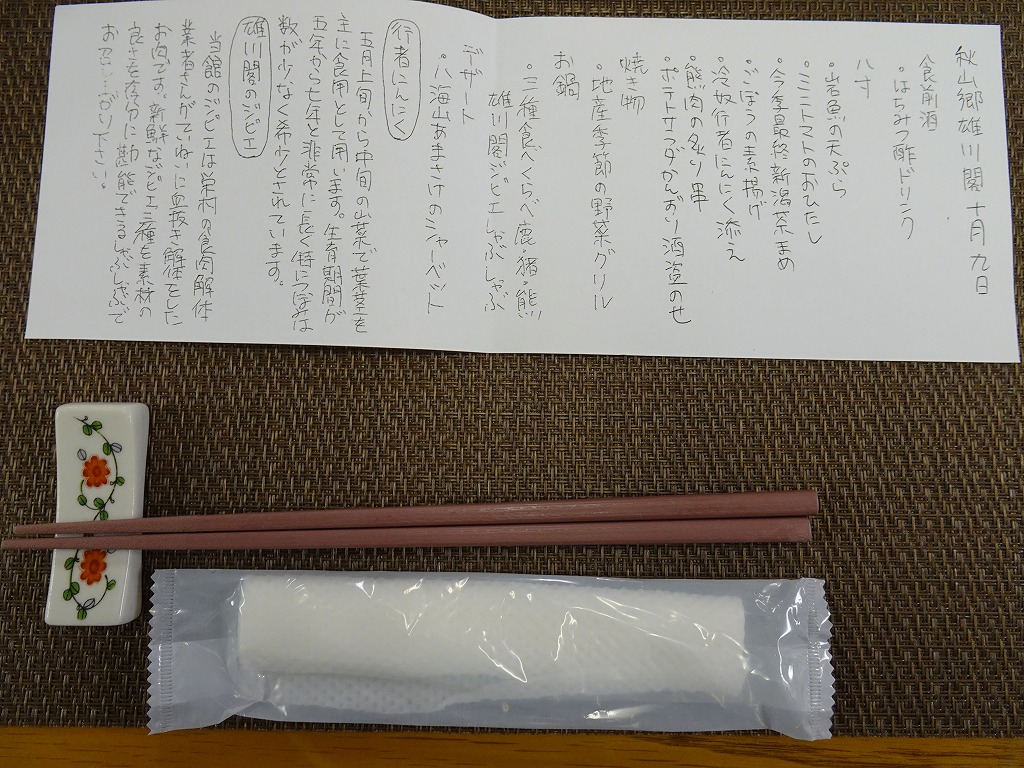 秋山郷雄川閣 十月九日
食前酒
・はちみつ酢ドリンク
八寸
・岩魚の天ぷら
・ミニトマトのおひたし
・今季最終新潟茶まめ
・ごぼうの素揚げ
・冷奴行者にんにく添え
・熊肉の炙り串
・ポテトサラダかんずり酒盗のせ
焼き物
・地産季節の野菜グリル
お鍋
・三種食べくらべ鹿・猪・熊
雄川閣ジビエしゃぶしゃぶ
デザート
・八海山あまさけのシャーベット
行者にんにく
五月上旬から中旬の山菜で葉茎を
主に食用として用います。生育期間が
五年から七年と非常に長く特につぼみは
数が少なく希少とされています。
雄川閣のジビエ
当館のジビエは栄村の食肉解体
業者さんがていねいに血抜き解体をした
お肉です。新鮮なジビエ三種を素材の
良さを存分に堪能できるしゃぶしゃぶで
お召し上がり下さい。